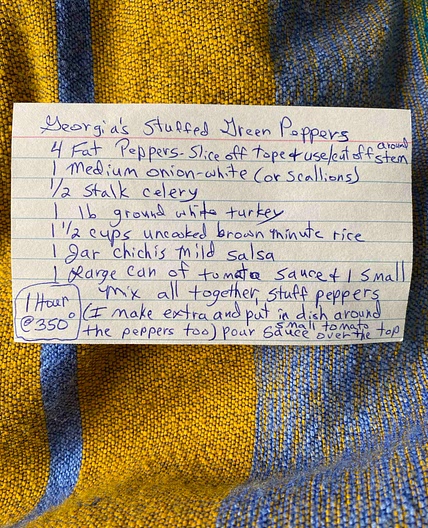 Georgia's Stuffed Green Peppers
4 Fat Peppers - Slice off tops & use/cut off around stem
1 Medium onion-white (or scallions)
1/2 stalk celery
1 lb ground white turkey
1 1/2 cups uncooked brown minute rice
1 Jar chichis mild salsa
1 Large can of tomato sauce & 1 small
Mix all together, stuff peppers
1 Hour
@ 350°
(I make extra and put in dish around
the peppers too) pour small tomato sauce over the top